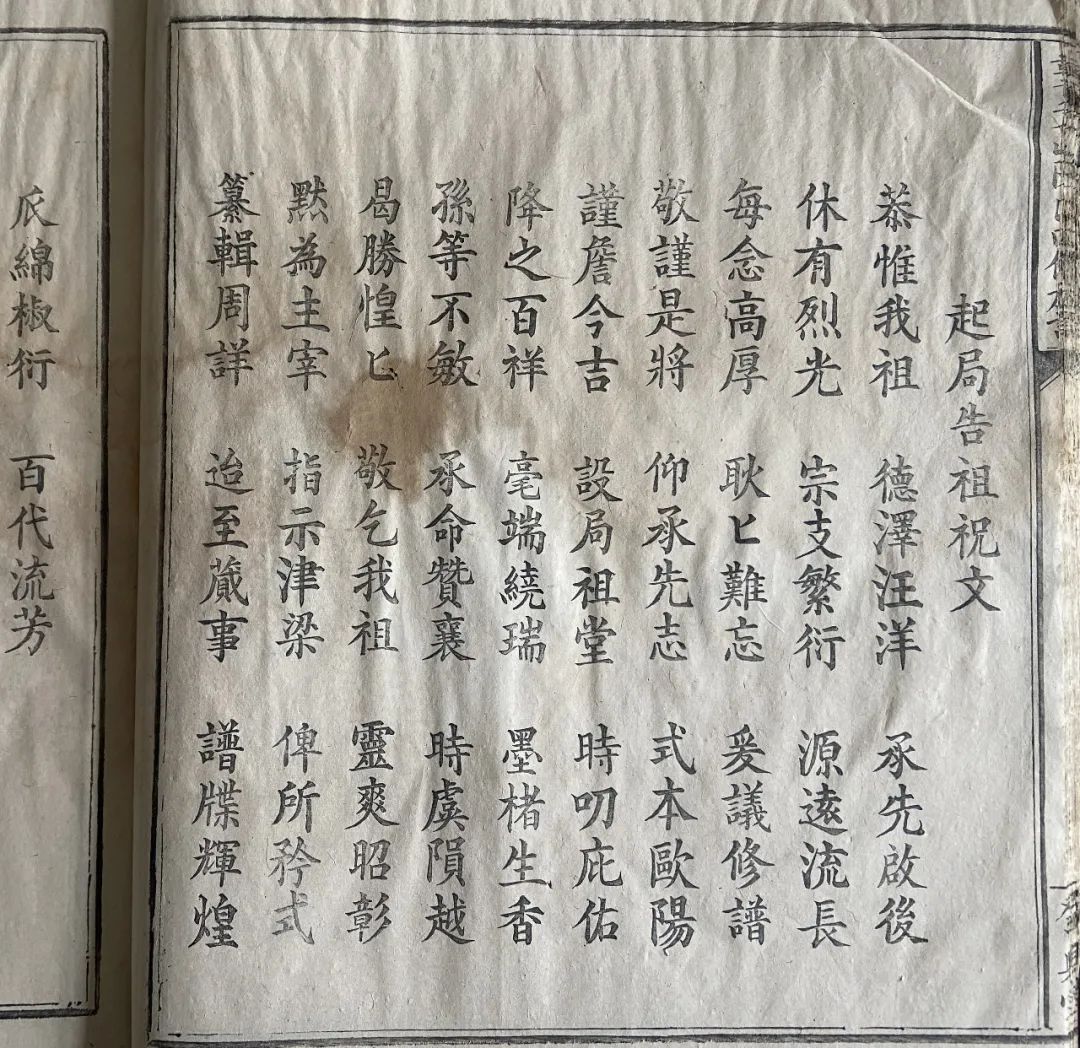 起局告祖祝文
恭惟我祖 德澤汪洋 承先啟後
休有烈光 宗支繁衍 源遠流長
每念高厚 耿匕難忘 爰議修譜
敬謹是將 仰承先志 式本歐陽
謹詹今吉 設局祖堂 時叨庇佑
降之百祥 毫端繞瑞 墨楮生香
孫等不敏 承命贊襄 時虞隕越
曷勝惶匕 敬乞我祖 靈爽昭彰
默為主宰 指示津梁 俾所矜式
纂輯周詳 迨至蕆事 譜牒輝煌
瓜綿椒衍 百代流芳